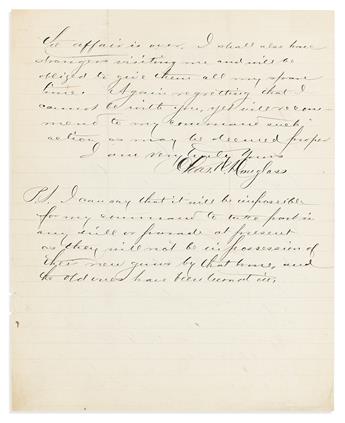 the affair is over. I shall also have
strangers visiting me and will be
obliged to give them all my spare
time. Again regretting that I
cannot be with you, yet will recom-
mend to my command such
action as may be deemed proper
I am Very Truly Yours
Chas. R. Douglass
P.S. I can say that it will be impossible
for my command to take part in
any drill or parade at present
as they will not be in possession of
their new guns by that time, and
the old ones have been turned in.